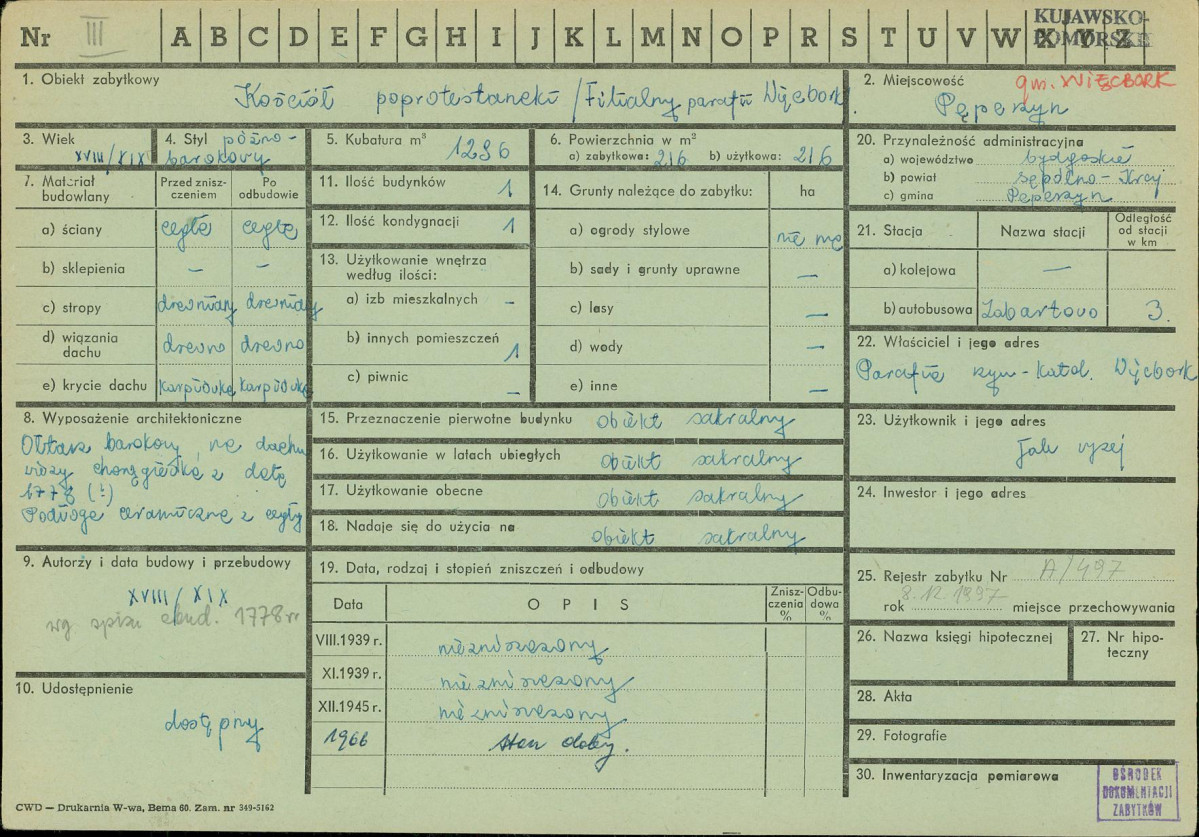 Nr III A B C D E F G H I J K L M N O P R S T U V W X Y Z
KUJAWSKO-
POMORSKIE
1. Obiekt zabytkowy
Kościół poprotestancki / Filialny parafii Więcbork
2. Miejscowość gm. WIĘCBORK
Pęperzyn
3. Wiek
XVIII/XIX
4. Styl późno-
barokowy
5. Kubatura m³ 1296
6. Powierzchnia w m²
a) zabytkowa: 216 b) użytkowa: 216
7. Materiał
budowlany
Przed znisz-
czeniem
Po
odbudowie
a) ściany cegła cegła
b) sklepienia – –
c) stropy drewniany drewniany
d) wiązania
dachu drewno drewno
e) krycie dachu karpiówka karpiówka
8. Wyposażenie architektoniczne
Ołtarz barokowy, na dachu
wieży chorągiewka z datą
(!)
Podłoga ceramiczna z cegły
9. Autorzy i data budowy i przebudowy
XVIII/XIX
wg spisu ebud. 1778 r.
10. Udostępnienie
dostępny
11. Ilość budynków 1
12. Ilość kondygnacji 1
13. Użytkowanie wnętrza
według ilości:
a) izb mieszkalnych –
b) innych pomieszczeń 1
c) piwnic –
14. Grunty należące do zabytku: ha
a) ogrody stylowe nie ma
b) sady i grunty uprawne –
c) lasy –
d) wody –
e) inne –
15. Przeznaczenie pierwotne budynku obiekt sakralny
16. Użytkowanie w latach ubiegłych obiekt sakralny
17. Użytkowanie obecne obiekt sakralny
18. Nadaje się do użycia na obiekt sakralny
19. Data, rodzaj i stopień zniszczeń i odbudowy
Data OPIS
Znisz-
czenia
%
Odbu-
dowa
%
VIII.1939 r. niezniszczony
XI.1939 r. niezniszczony
XII.1945 r. niezniszczony
1966 stan dobry.
20. Przynależność administracyjna
a) województwo bydgoskie
b) powiat sępólno-Kraj
c) gmina Pęperzyn
21. Stacja Nazwa stacji
Odległość
od stacji
w km
a) kolejowa –
b) autobusowa Zabartowo 3.
22. Właściciel i jego adres
Parafia rzym-katol. Więcbork
23. Użytkownik i jego adres
Jak wyżej
24. Inwestor i jego adres
25. Rejestr zabytku Nr A/497
8.12.1997
rok miejsce przechowywania
26. Nazwa księgi hipotecznej
27. Nr hipo-
teczny
28. Akta
29. Fotografie
30. Inwentaryzacja pomiarowa
OŚRODEK
DOKUMENTACJI
ZABYTKÓW
CWD — Drukarnia W-wa, Bema 60. Zam. nr 349-5162